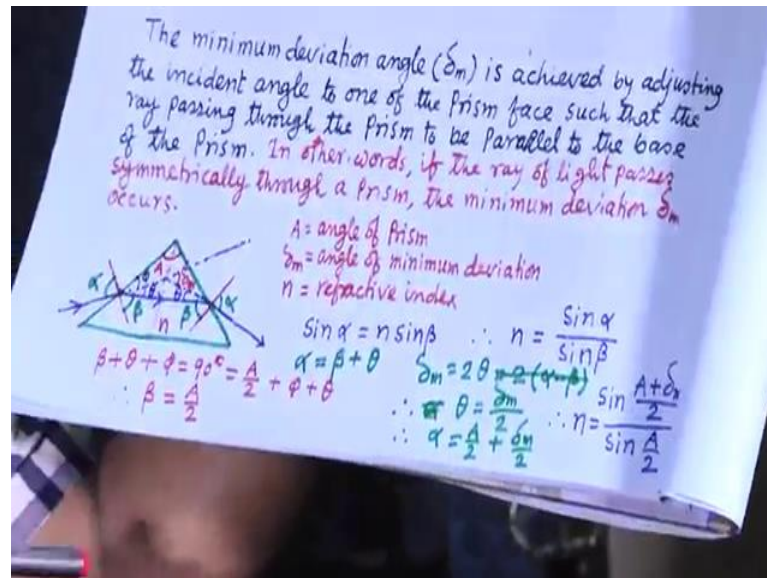 The minimum deviation angle (δm) is achieved by adjusting
the incident angle to one of the Prism face such that the
ray passing through the Prism to be Parallel to the base
of the Prism. In other words, if the ray of light passes
symmetrically through a prism, the minimum deviation δm
occurs.
A = angle of Prism
δm = angle of minimum deviation
n = refractive index
A
α α
β β
n
Sinα = n sinβ ∴ n = Sinα / Sinβ
β + θ + φ = 90° = A/2 + φ + θ
∴ β = A/2
α = β + θ
δm = 2θ = 2(α-β)
∴ θ = δm/2
∴ α = A/2 + δm/2
∴ n = Sin (A+δm)/2 / Sin A/2